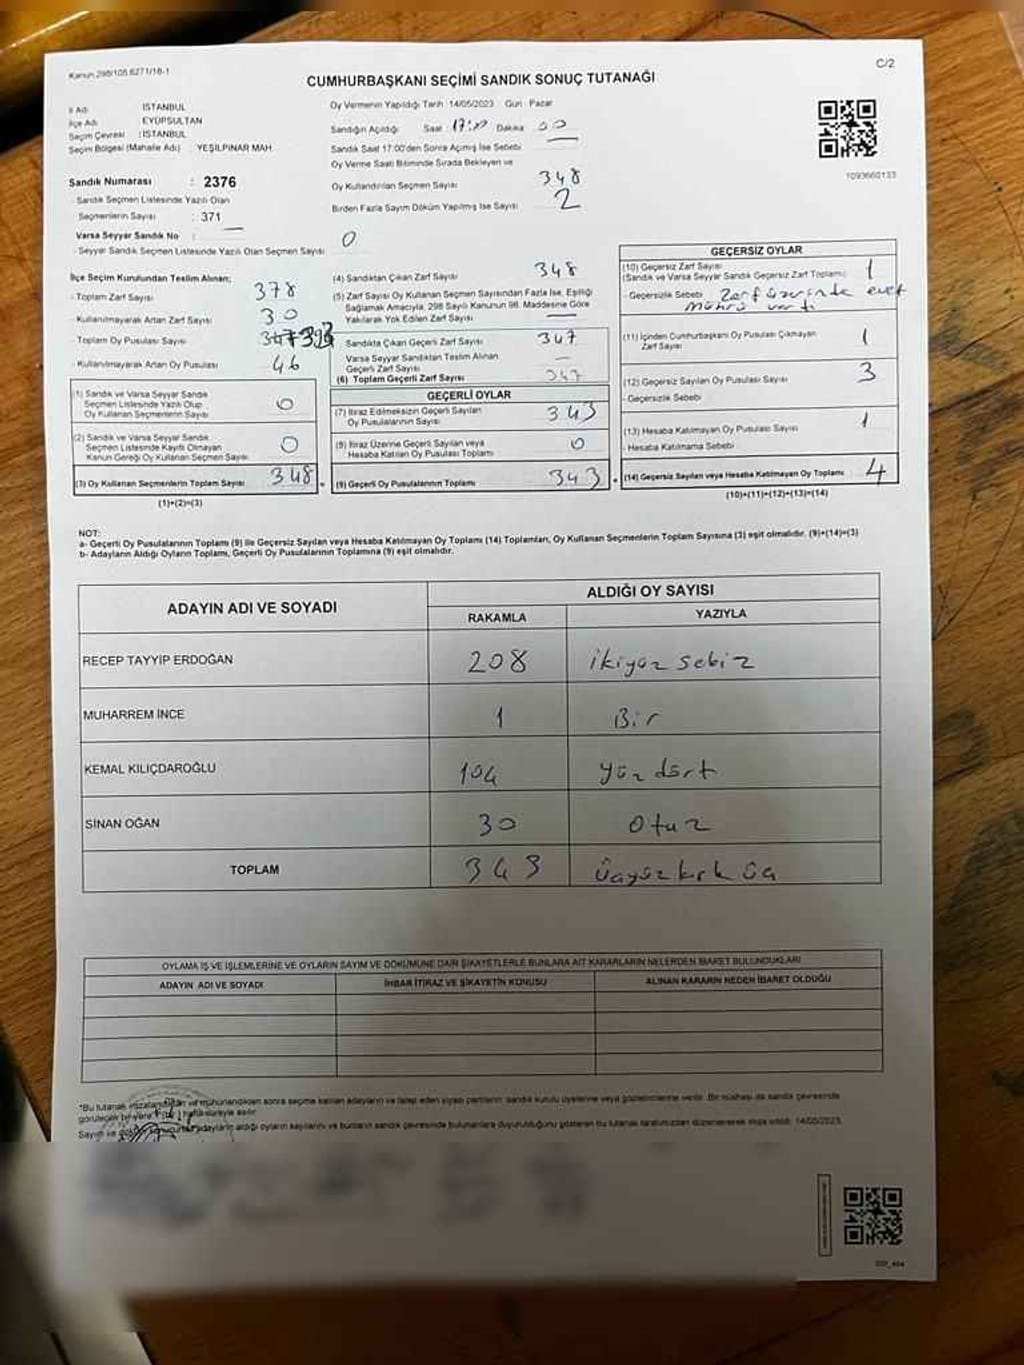 Kanun 298/105 6271/18-1
C/2
CUMHURBAŞKANI SEÇİMİ SANDIK SONUÇ TUTANAĞI
İl Adı : İSTANBUL
İlçe Adı : EYÜPSULTAN
Seçim Çevresi : İSTANBUL
Seçim Bölgesi (Mahalle Adı) : YEŞİLPINAR MAH.
Sandık Numarası : 2376
- Sandık Seçmen Listesinde Yazılı Olan
Seçmenlerin Sayısı : 371
Varsa Seyyar Sandık No :
- Seyyar Sandık Seçmen Listesinde Yazılı Olan Seçmen Sayısı : 0
Oy Vermenin Yapıldığı Tarih :14/05/2023 Gün : Pazar
Sandığın Açıldığı Saat : 17:00 Dakika 00
Sandık Saat 17:00'den Sonra Açılmış İse Sebebi :
Oy Verme Saati Bitiminde Sırada Bekleyen ve
Oy Kullandırılan Seçmen Sayısı 348
Birden Fazla Sayım Döküm Yapılmış İse Sayısı 2
1093660133
İlçe Seçim Kurulundan Teslim Alınan;
- Toplam Zarf Sayısı 378
- Kullanılmayarak Artan Zarf Sayısı 30
- Toplam Oy Pusulası Sayısı
- Kullanılmayarak Artan Oy Pusulası 46
(1) Sandık ve Varsa Seyyar Sandık
Seçmen Listesinde Yazılı Olup
Oy Kullanan Seçmenlerin Sayısı 0
(2) Sandık ve Varsa Seyyar Sandık
Seçmen Listesinde Kayıtlı Olmayan
Kanun Gereği Oy Kullanan Seçmen Sayısı 0
(3) Oy Kullanan Seçmenlerin Toplam Sayısı 348
(1)+(2)=(3)
(4) Sandıktan Çıkan Zarf Sayısı 348
(5) Zarf Sayısı Oy Kullanan Seçmen Sayısından Fazla İse, Eşitliği
Sağlamak Amacıyla, 298 Sayılı Kanunun 98. Maddesine Göre
Yakılarak Yok Edilen Zarf Sayısı —
Sandıkta Çıkan Geçerli Zarf Sayısı 347
Varsa Seyyar Sandıktan Teslim Alınan
Geçerli Zarf Sayısı —
(6) Toplam Geçerli Zarf Sayısı 347
GEÇERLİ OYLAR
(7) İtiraz Edilmeksizin Geçerli Sayılan
Oy Pusulasının Sayısı 343
(8) İtiraz Üzerine Geçerli Sayılan veya
Hesaba Katılan Oy Pusulası Toplamı 0
(9) Geçerli Oy Pusulalarının Toplamı 343
GEÇERSİZ OYLAR
(10) Geçersiz Zarf Sayısı
(Sandık ve Varsa Seyyar Sandık Geçersiz Zarf Toplamı) 1
- Geçersizlik Sebebi : Zarf üzerinde evet
mührü vardı
(11) İçinden Cumhurbaşkanı Oy Pusulası Çıkmayan
Zarf Sayısı 1
(12) Geçersiz Sayılan Oy Pusulası Sayısı 3
- Geçersizlik Sebebi :
(13) Hesaba Katılmayan Oy Pusulası Sayısı 1
- Hesaba Katılmama Sebebi :
(14) Geçersiz Sayılan veya Hesaba Katılmayan Oy Toplamı 4
(10)+(11)+(12)+(13)=(14)
NOT:
a- Geçerli Oy Pusulalarının Toplamı (9) ile Geçersiz Sayılan veya Hesaba Katılmayan Oy Toplamı (14) Toplamları, Oy Kullanan Seçmenlerin Toplam Sayısına (3) eşit olmalıdır. (9)+(14)=(3)
b- Adayların Aldığı Oyların Toplamı, Geçerli Oy Pusulalarının Toplamına (9) eşit olmalıdır.
ADAYIN ADI VE SOYADI
ALDIĞI OY SAYISI
RAKAMLA YAZIYLA
RECEP TAYYİP ERDOĞAN 208 ikiyüz sekiz
MUHARREM İNCE 1 Bir
KEMAL KILIÇDAROĞLU 104 yüz dört
SİNAN OĞAN 30 Otuz
TOPLAM 343 üçyüz kırk üç
OYLAMA İŞ VE İŞLEMLERİNE VE OYLARIN SAYIM VE DÖKÜMÜNE DAİR ŞİKAYETLERLE BUNLARA AİT KARARLARIN NELERDEN İBARET BULUNDUKLARI
ADAYIN ADI VE SOYADI İHBAR İTİRAZ VE ŞİKAYETİN KONUSU ALINAN KARARIN NEDEN İBARET OLDUĞU
*Bu tutanak imzalandıktan ve mühürlendikten sonra seçime katılan adayların ve talep eden siyasi partilerin sandık kurulu üyelerine veya gözlemcilerine verilir. Bir nüshası da sandık çevresinde
görülecek bir yere süreyle asılır.
Sayım ve adayların aldığı oyların sayılarını ve bunların sandık çevresinde bulunanlara duyurulduğunu gösteren bu tutanak tarafımızdan düzenlenerek imza edildi. 14/05/2023